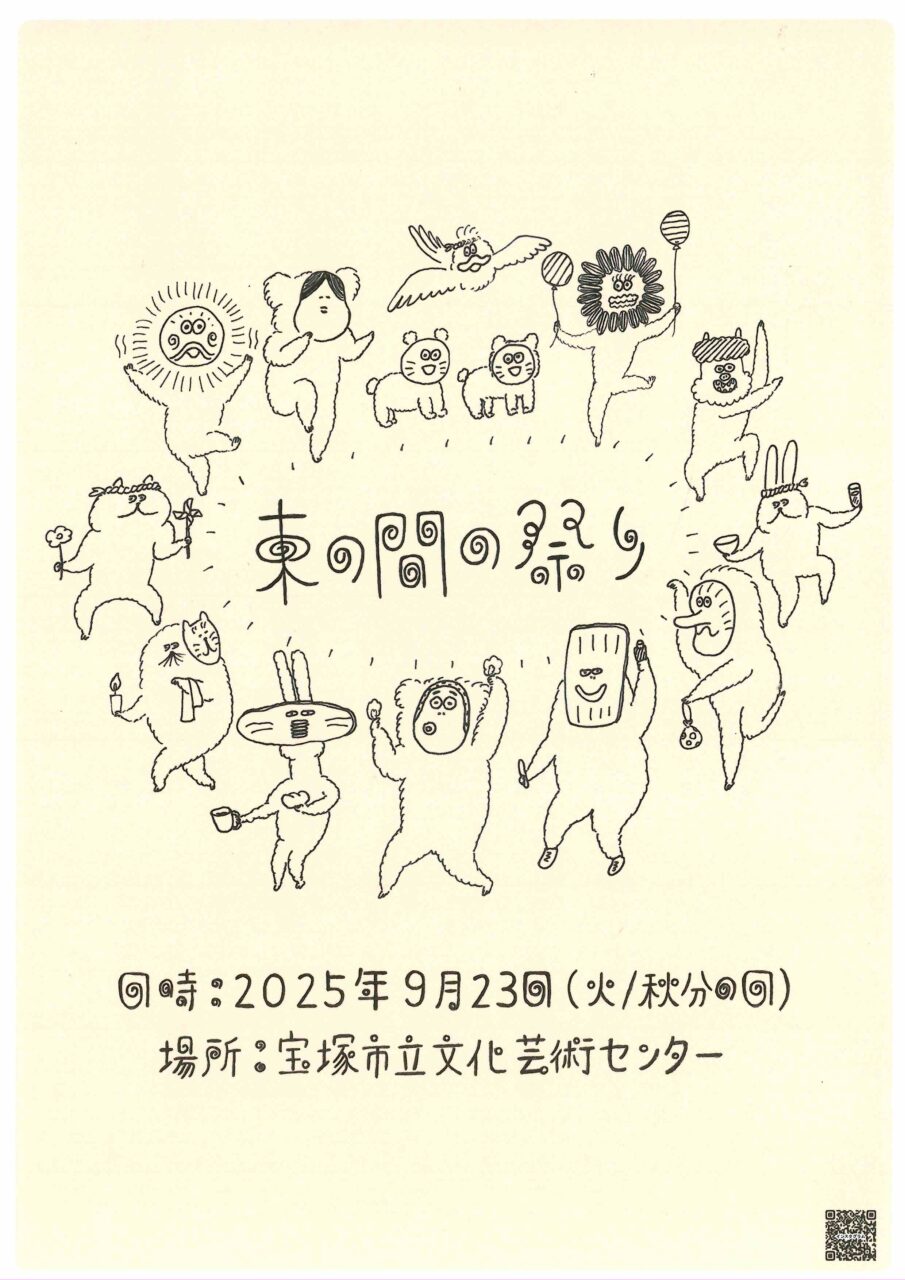 束の間の祭り
日時：2025年9月23日（火/秋分の日）
場所：宝塚市立文化芸術センター
インスタグラム